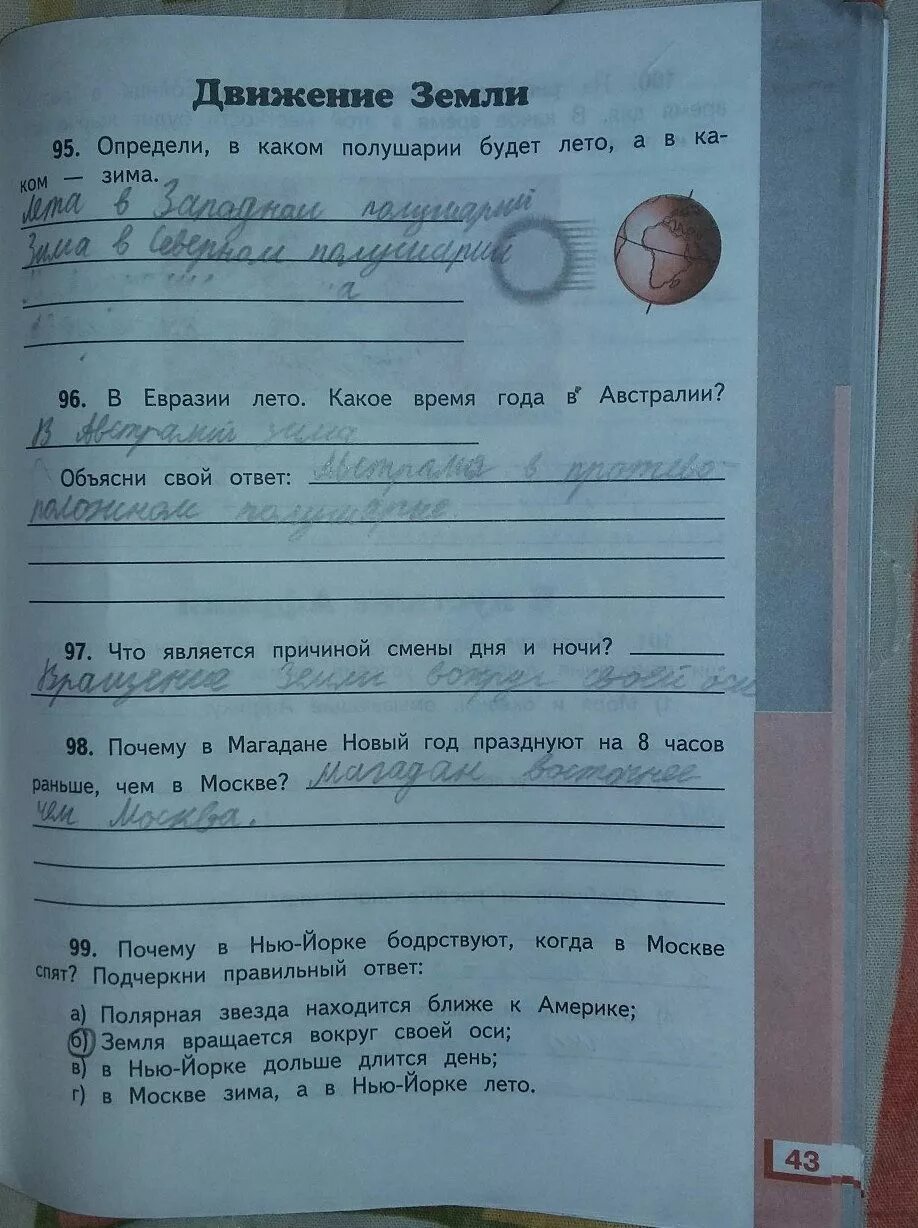 Движение Земли
95. Определи, в каком полушарии будет лето, а в ка-
ком — зима.
Лета в Западном полушарий
Зима в Северном полушарий
а
96. В Евразии лето. Какое время года в Австралии?
В Австралий зима
Объясни свой ответ: Австралия в протево-
положном полушарие.
97. Что является причиной смены дня и ночи?
Вращение Земли вокруг своей оси
98. Почему в Магадане Новый год празднуют на 8 часов
раньше, чем в Москве? Магадан восточнее
чем Москва.
99. Почему в Нью-Йорке бодрствуют, когда в Москве
спят? Подчеркни правильный ответ:
а) Полярная звезда находится ближе к Америке;
б) Земля вращается вокруг своей оси;
в) в Нью-Йорке дольше длится день;
г) в Москве зима, а в Нью-Йорке лето.
43